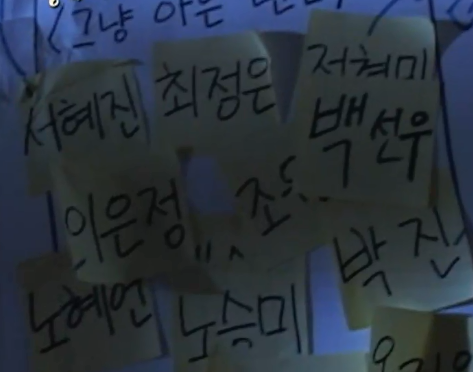 그냥 아는
서혜진
최정은
저혜미
백선우
의은정
조
박진
노혜언
노승미